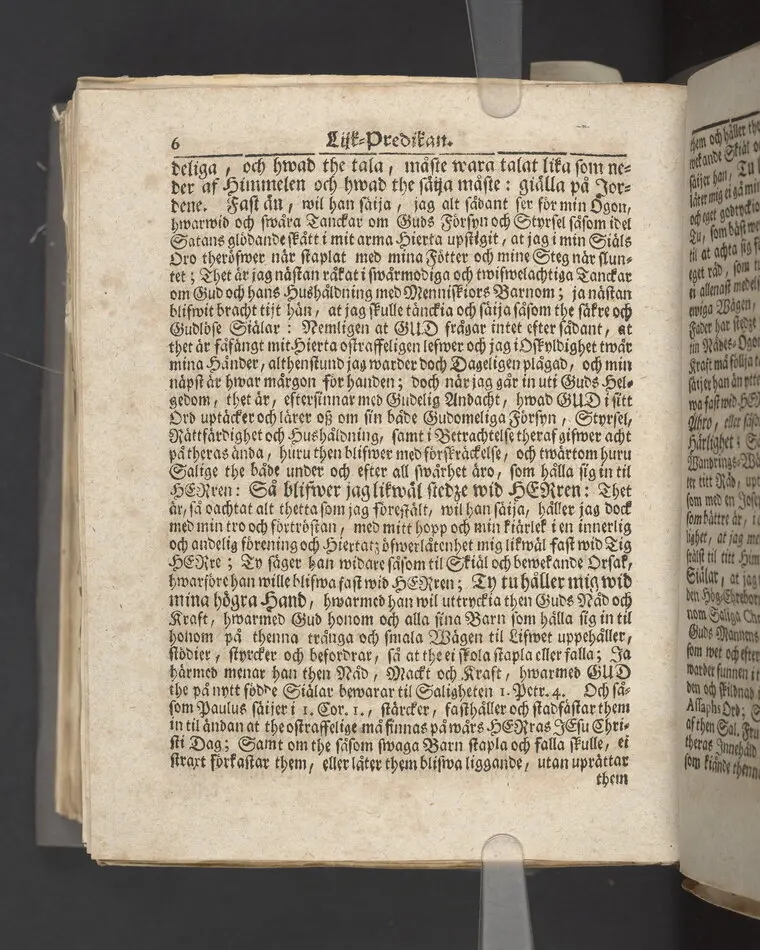 6
Lijk-Predikan.
deliga, och hwad the tala, måste wara talat lika som ne-
der af Himmelen och hwad the säija måste: giälla på Jor-
dene. Fast än, wil han säija, jag alt sådant ser för min Ögon,
hwarwid och swåra Tanckar om Guds Försyn och Styrsel såsom idel
Satans glödande skått i mit arma Hierta upstigit, at jag i min Siäls
Oro theröfwer när staplat med mina Fötter och mine Steg när slun-
tet; Thet är jag nästan råkat i swårmodiga och twiswelachtiga Tanckar
om Gud och hans Hushåldning med Menniskiors Barnom; ja nästan
blifwit bracht tijt hän, at jag skulle tänckia och säija såsom the säkre och
Gudlöse Siälar: Nemligen at GUD frågar intet efter sådant, at
thet är fåfängt mit Hierta ostraffeligen lefwer och jag i Oskyldighet twår
mina Händer, althenstund jag warder doch Dageligen plågad, och min
näpst är hwar mårgon för handen; doch när jag går in uti Guds Hel-
gedom, thet är, eftersinnar med Gudelig Andacht, hwad GUD i sitt
Ord uptäcker och lärer oß om sin både Gudomeliga Försyn, Styrsel,
Rättfärdighet och Hushåldning, samt i Betrachtelse theraf gifwer acht
på theras ända, huru then blifwer med förskräckelse, och twärtom huru
Salige the både under och efter all swårhet äro, som hålla sig in til
HERren: Så blifwer jag likwäl stedze wid HERren: Thet
är, så oachtat alt thetta som jag förestält, wil han säija, håller jag dock
med min tro och förtröstan, med mitt hopp och min kiärlek i en innerlig
och andelig förening och Hiertatz öfwerlåtenhet mig likwäl fast wid Tig
HERre; Ty säger han widare såsom til Skiäl och bewekande Orsak,
hwarföre han wille blifwa fast wid HERren; Ty tu håller mig wid
mina högra Hand, hwarmed han wil uttryckia then Guds Nåd och
Kraft, hwarmed Gud honom och alla sina Barn som hålla sig in til
honom på thenna trånga och smala Wägen til Lifwet uppehåller,
stödier, styrcker och befordrar, så at the ei skola stapla eller falla; Ja
härmed menar han then Nåd, Mackt och Kraft, hwarmed GUD
the på nytt födde Siälar bewarar til Saligheten 1. Petr. 4. Och så-
som Paulus säijer i 1. Cor. 1., stärcker, fasthåller och stadfästar them
in til ändan at the ostraffelige må finnas på wårs HERras JEsu Chri-
sti Dag; Samt om the såsom swaga Barn stapla och falla skulle, ei
straxt förkastar them, eller låter them blifwa liggande, utan uprättar
them